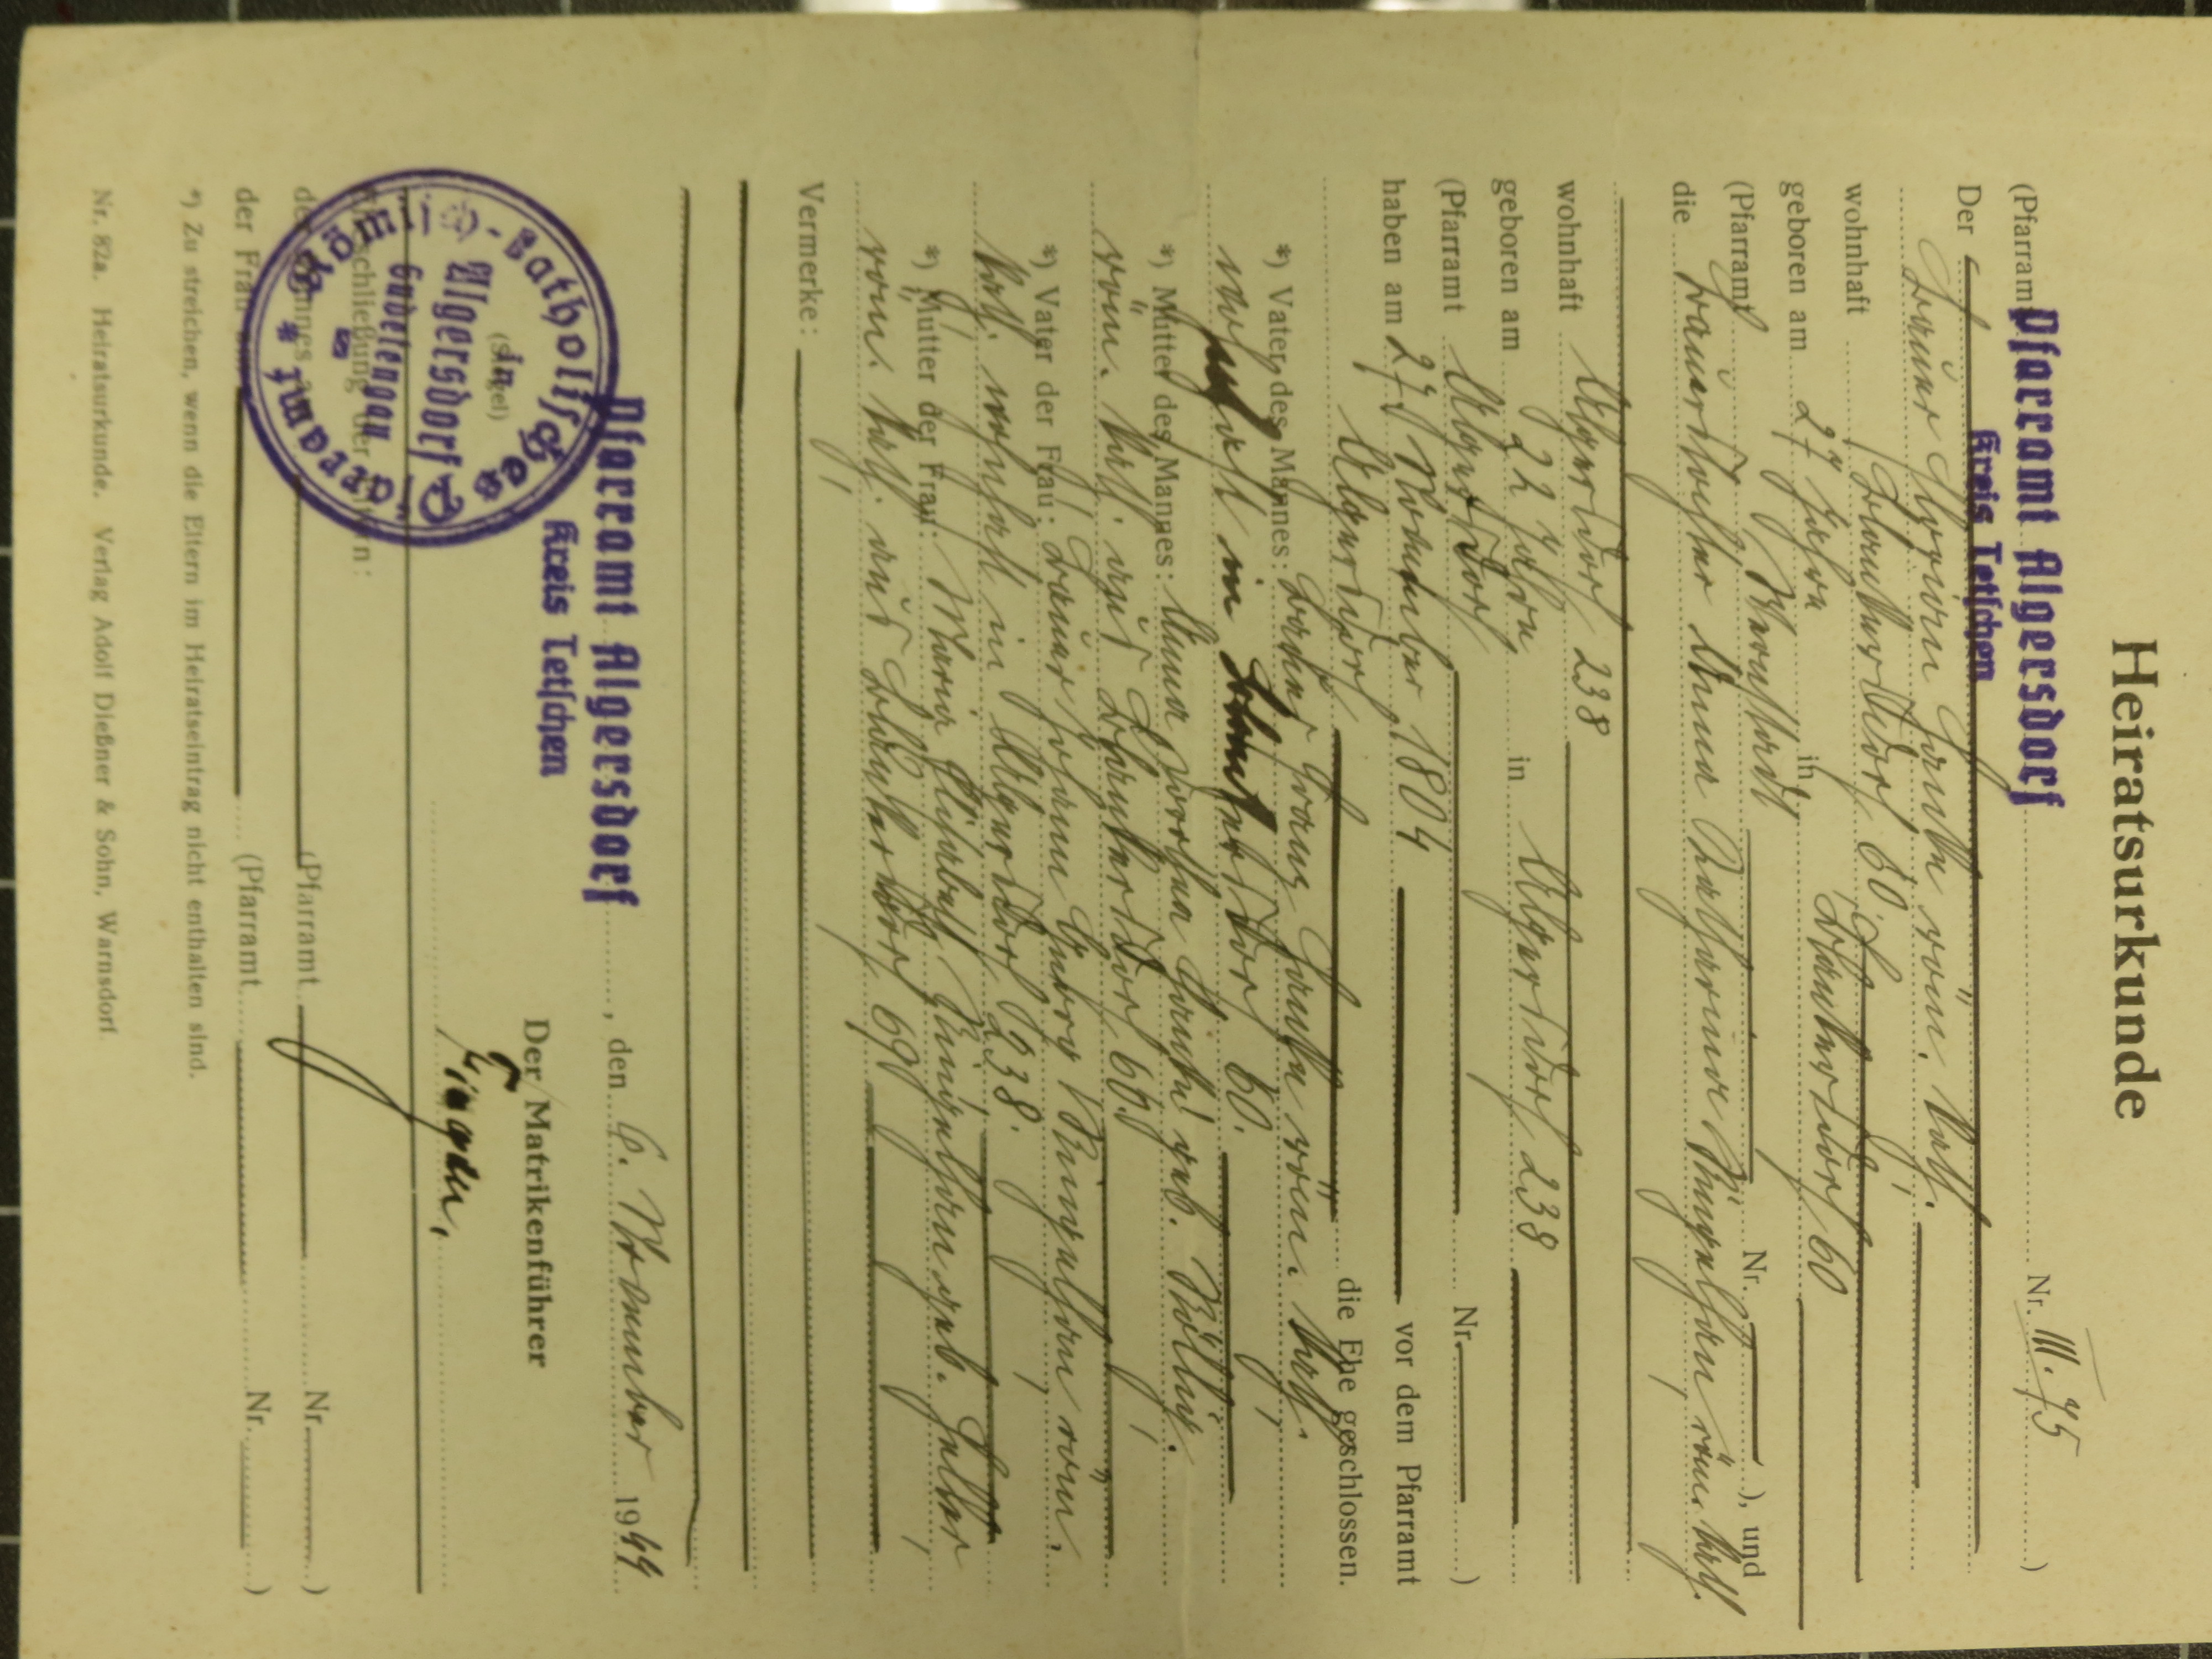 Heiratsurkunde
(Pfarramt Pfarramt Algersdorf Nr. III. 75 )
Kreis Tetschen
Der
Bauer Florian Hanke, röm. kath.
wohnhaft Blankersdorf 60,
geboren am 27 Jahre in Blankersdorf 60
(Pfarramt Wernstadt Nr. ), und
die Bauerstochter Anna Katharina Ringelhan, röm. kath.
wohnhaft Algersdorf 238
geboren am 22 Jahre in Algersdorf 238
(Pfarramt Algersdorf Nr. )
haben am 27. November 1804 vor dem Pfarramt
Algersdorf die Ehe geschlossen.
*) Vater des Mannes: Bauer Franz Hanke, röm. kath.,
wohnhaft in Blankersdorf 60.
*) Mutter des Mannes: Anna Dorothea Hanke, geb. Röllig,
röm. kath. aus Blankersdorf 60.
*) Vater der Frau: Bauer Johann Georg Ringelhan, röm.
kath. wohnhaft in Algersdorf 238;
*) Mutter der Frau: Maria Elisabeth Ringelhan geb. Heller,
röm. kath. aus Blankersdorf 69
Vermerke:
Pfarramt Algersdorf , den 6. November 1944
Kreis Tetschen
Der Matrikenführer
Römisch-katholisches Pfarramt *
in
(Siegel)
Algersdorf
Sudetengau
Eheschließung der Eltern:
des Mannes am (Pfarramt Nr. )
der Frau am (Pfarramt Nr. )
*) Zu streichen, wenn die Eltern im Heiratseintrag nicht enthalten sind.
Nr. 82a. Heiratsurkunde. Verlag Adolf Dießner & Sohn, Warnsdorf